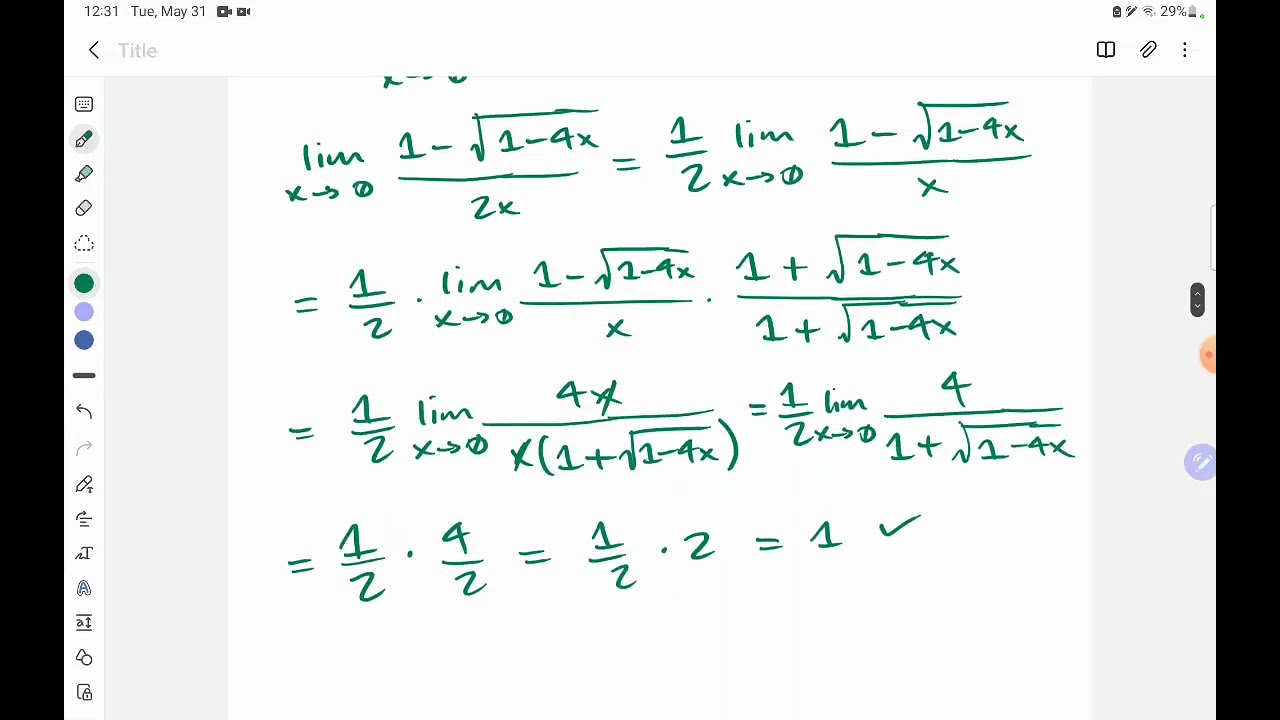 12:31 Tue, May 31 29%
Title
x→0
lim x→0 (1-√(1-4x))/(2x) = 1/2 lim x→0 (1-√(1-4x))/x
= 1/2 · lim x→0 (1-√(1-4x))/x · (1+√(1-4x))/(1+√(1-4x))
= 1/2 lim x→0 4x/(x(1+√(1-4x))) = 1/2 lim x→0 4/(1+√(1-4x))
= 1/2 · 4/2 = 1/2 · 2 = 1 ✓